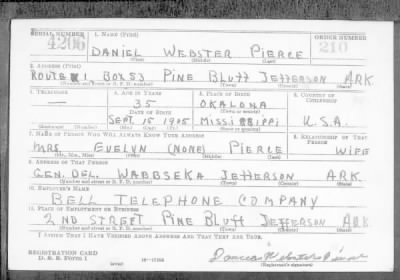 SERIAL NUMBER 1. NAME (Print) ORDER NUMBER
4206 DANIEL WEBSTER PIERCE 210
(First) (Middle) (Last)
2. ADDRESS (Print)
ROUTE #1 BOX 53 PINE BLUFF JEFFERSON ARK.
(Number and street or R. F. D. number) (Town) (County) (State)
3. TELEPHONE 4. AGE IN YEARS 5. PLACE OF BIRTH 6. COUNTRY OF CITIZENSHIP
— 35 OKALONA
DATE OF BIRTH (Town or county)
SEPT. 15 1905 MISSISSIPPI U.S.A.
(Exchange) (Number) (Mo.) (Day) (Yr.) (State or country)
7. NAME OF PERSON WHO WILL ALWAYS KNOW YOUR ADDRESS 8. RELATIONSHIP OF THAT PERSON
MRS. EVELYN (NONE) PIERCE WIFE
(Mr., Mrs., Miss) (First) (Middle) (Last)
9. ADDRESS OF THAT PERSON
GEN. DEL. WABBSEKA JEFFERSON ARK
(Number and street or R. F. D. number) (Town) (County) (State)
10. EMPLOYER'S NAME
BELL TELEPHONE COMPANY
11. PLACE OF EMPLOYMENT OR BUSINESS
2ND STREET PINE BLUFF JEFFERSON ARK
(Number and street or R. F. D. number) (Town) (County) (State)
I AFFIRM THAT I HAVE VERIFIED ABOVE ANSWERS AND THAT THEY ARE TRUE.
REGISTRATION CARD
D. S. S. FORM 1 16—17105 (Registrant's signature)